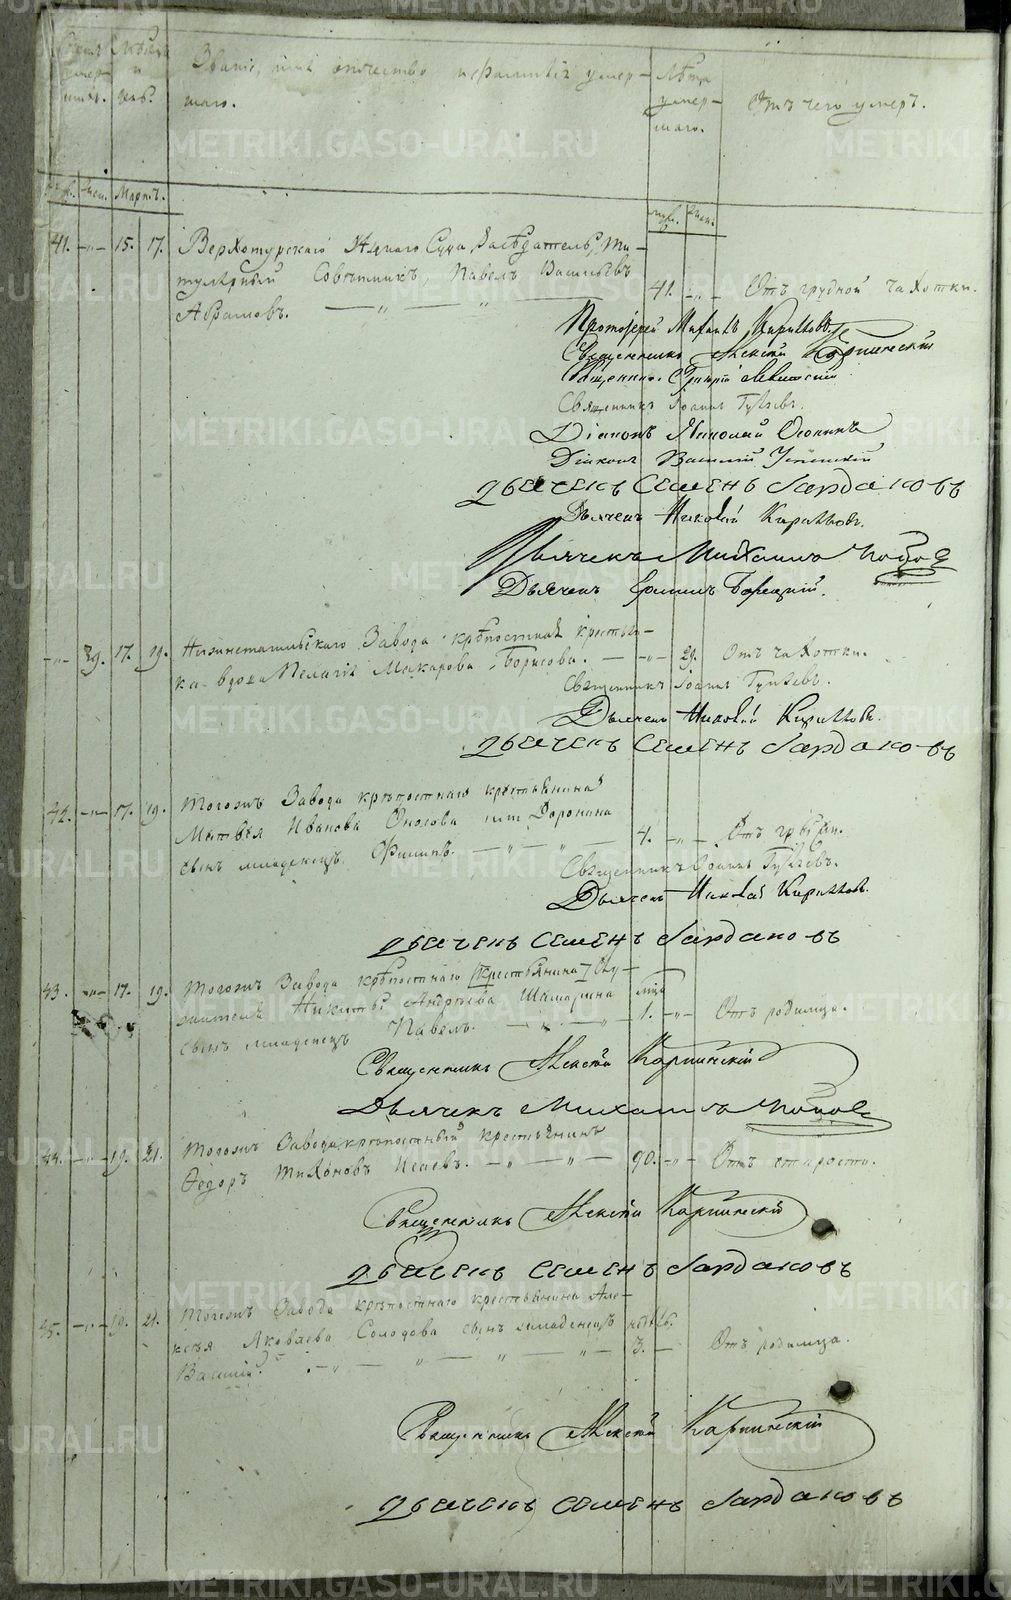 Счетъ умер- шихъ. Мѣсяцъ и день. Званіе, имя отчество и фамилія умер- Лѣта умер- Отъ чего умеръ.
шаго. шаго.
Муж. Жен. Мартъ. муж. жен.
41. -„- 15. 17. Верхотурскаго Уѣзднаго Суда Засѣдатель, Ти-
тулярный Совѣтникъ, Павелъ Васильевъ
Абрамовъ. 41. -„- Отъ грудной чахотки.
Протоіерей Михаилъ Кирилловъ
Священникъ Алексѣй Карпинскій
Священникъ Григорій Левитскій
Священникъ Іоаннъ Гуляевъ.
Діаконъ Николай Осокинъ
Діаконъ Василій Успенскій
Дьячекъ Семенъ Сардаковъ
Дьячекъ Николай Кирилловъ.
Дьячекъ Михаилъ Поповъ
Дьячекъ
-„- 39. 17. 19. Нижнетагильскаго Завода крѣпостная крестьян-
ка вдова Пелагія Макарова Борисова. -„- 29. Отъ чахотки.
Священникъ Іоаннъ Гуляевъ.
Дьячекъ Николай Кирилловъ.
Дьячекъ Семенъ Сардаковъ
42. -„- 17. 19. Тогожъ Завода крѣпостнаго крестьянина
Матвѣя Иванова Доронина
сынъ младенецъ Филипъ. 4. -„- Отъ грыжи.
Священникъ Іоаннъ Гуляевъ.
Дьячекъ Николай Кирилловъ.
Дьячекъ Семенъ Сардаковъ
43. -„- 17. 19. Тогожъ Завода крѣпостнаго крестьянина
Никиты Андреева Шамарина мца
сынъ младенецъ Павелъ. 1. -„- Отъ родимца.
Священникъ Алексѣй Карпинскій
Дьячекъ Михаилъ Поповъ
44. -„- 19. 21. Тогожъ Завода крѣпостный крестьянинъ
Ѳедоръ Тихоновъ Исаевъ. 90. -„- Отъ старости.
Священникъ Алексѣй Карпинскій
Дьячекъ Семенъ Сардаковъ
45. -„- 19. 21. Тогожъ Завода крѣпостнаго крестьянина Але-
ксѣя Яковлева Солодова сынъ младенецъ недѣль
Василій. 3. - Отъ родимца.
Священникъ Алексѣй Карпинскій
Дьячекъ Семенъ Сардаковъ
METRIKI.GASO-URAL.RU